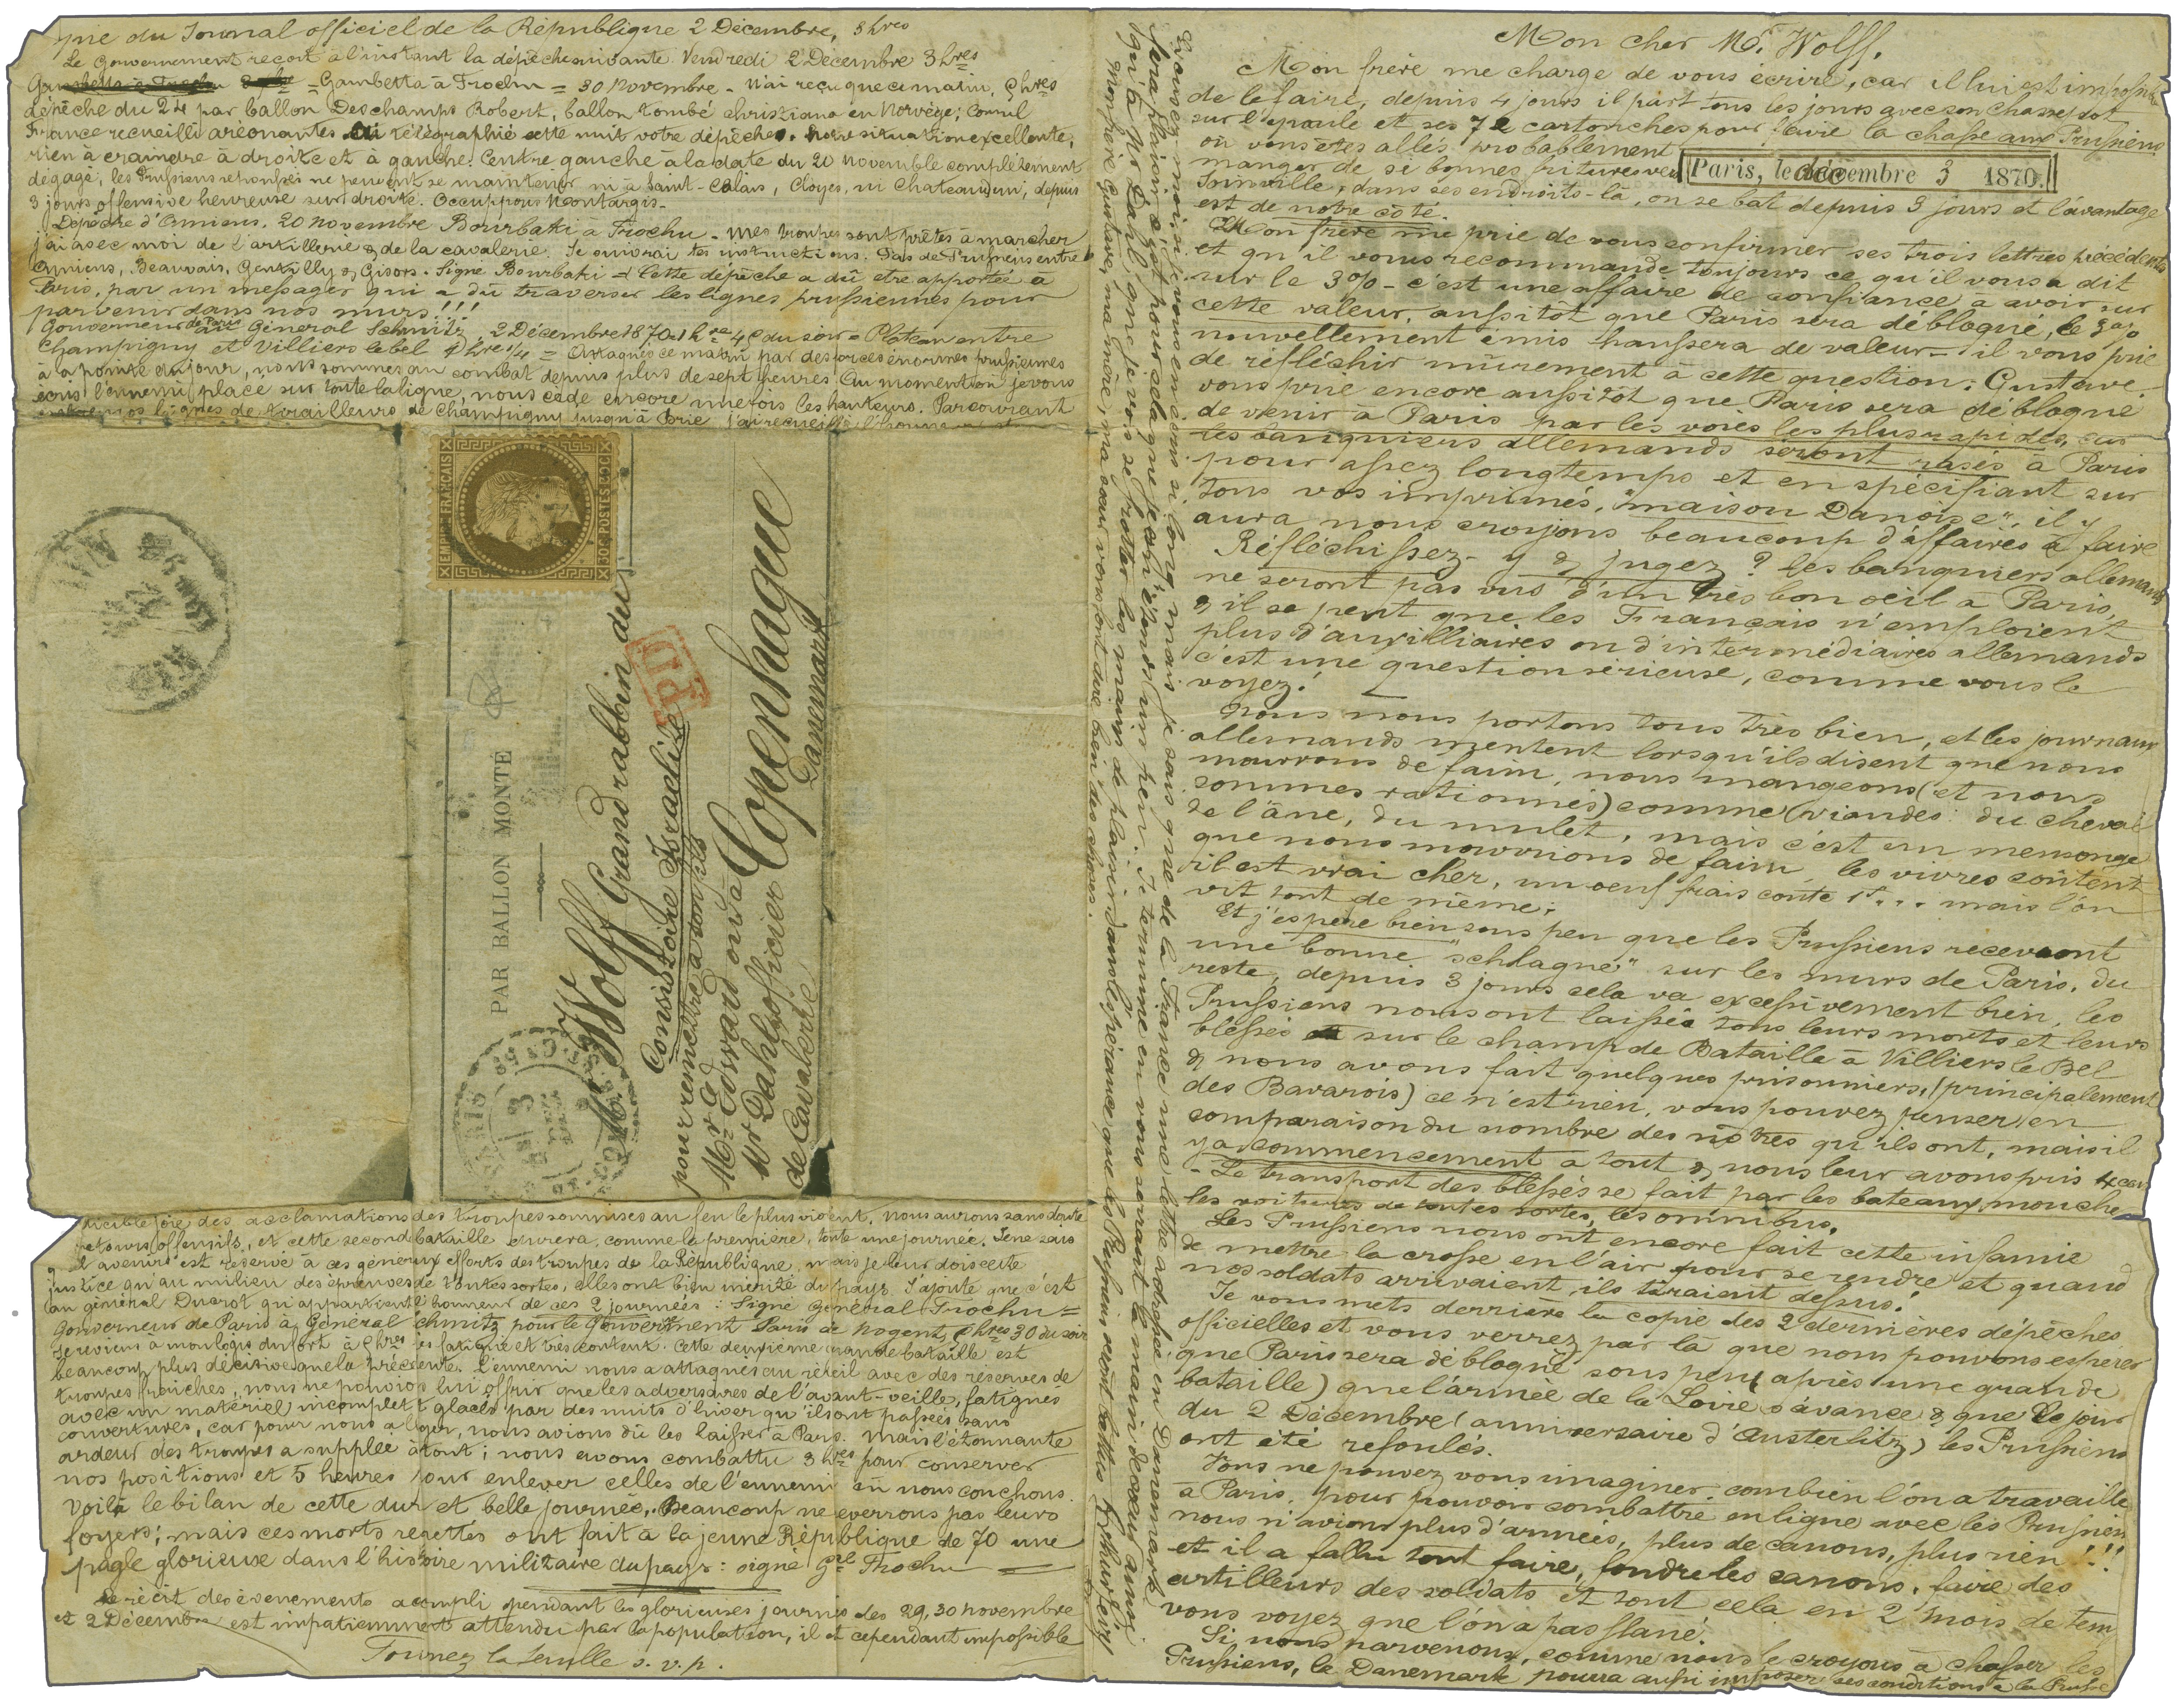 pie du Journal officiel de la République 2 Décembre, 3 hres
Le Gouvernement reçoit à l'instant la dépêche suivante Vendredi 2 Décembre 3 hres
= Gambetta à Trochu = 30 Novembre - N'ai reçu que ce matin, 9 hres
dépêche du 24 par ballon Deschamps Robert, ballon tombé christiana en Norvège; Consul
France recueilli aréonautes télégraphié cette nuit votre dépêche. Notre situation excellente,
rien à craindre à droite et à gauche. Centre gauche à la date du 20 novembre complètement
dégagé, les Prussiens repoussés ne peuvent se maintenir ni à Saint-Calais, Cloyes, ni Chateaudun; depuis
3 jours offensive heureuse sur droite. Occuppons Montargis -
Dépêche d'Amiens, 20 novembre Bourbaki à Trochu - Mes troupes sont prêtes à marcher
j'ai avec moi de l'artillerie & de la cavalerie. Je suivrai tes instructions. Pas de Prussiens entre
Amiens, Beauvais, Gentilly & Gisors. Signé Bourbaki = Cette dépêche a dû etre apportée à
Paris, par un messager qui a dû traverser les lignes prussiennes pour
parvenir dans nos murs!!!
Gouverneur de Paris à Général Schmitz, 2 Décembre 1870 1 hre du soir = Plateau entre
Champigny et Villiers lebel 1 hre 1/4 = Attaqués ce matin par des forces énormes prussiennes
à la pointe du jour, nous sommes au combat depuis plus de sept heures. Au moment où je vous
écris l'ennemi placé sur toute la ligne, nous cède encore une fois les hauteurs. Parcourant
nos lignes de tirailleurs de Champigny jusqu'à Brie j'ai recueilli l'honneur et
EMPIRE FRANÇAIS
30 C POSTES 30 C
PAR BALLON MONTÉ
PARIS
3
PD
Mr Wolff Grand rabbin du
Consistoire Israélite
pour remettre à son fils
Mr Edward ou à
Mr Dahl officier
de Cavalerie
Copenhague
Danemark
joie des acclamations des troupes soumises au feu le plus violent. Nous aurons sans doute
retours offensifs, et cette seconde bataille durera, comme la première, toute une journée. Je ne sais
avenir est réservé à ces généreux efforts des troupes de la République, mais je leur dois cette
justice qu'au milieu des épreuves de toutes sortes, elles ont bien mérité du pays. J'ajoute que c'est
au général Ducrot qu'appartient l'honneur de ces 2 journées: Signé général Trochu =
Gouverneur de Paris à Général Schmitz pour le Gouvernement Paris de Nogent, hres 30 du soir
Je reviens à mon logis du fort à 5 hres très fatigué et très content. Cette deuxième grande bataille est
beaucoup plus décisive que la précédente. L'ennemi nous a attaqués au réveil avec des réserves de
troupes fraîches, nous ne pouvions lui offrir que les adversaires de l'avant-veille, fatigués
avec un matériel incomplet & glacés par des nuits d'hiver qu'ils ont passées sans
couvertures, car pour nous alléger, nous avions dû les laisser à Paris. Mais l'étonnante
ardeur des troupes a supplée à tout; nous avons combattu 3 hres pour conserver
nos positions et 5 heures pour enlever celles de l'ennemi où nous couchons.
Voilà le bilan de cette dur et belle journée. Beaucoup ne reverrons pas leurs
foyers; mais ces morts regettés ont fait à la jeune République de 70 une
page glorieuse dans l'histoire militaire du pays: signé gal Trochu =
Le récit des évenements acompli pendant les glorieuses journées des 29, 30 novembre
et 2 Décembre est impatiemment attendu par la population, il est cependant impossible
Tournez la feuille s.v.p.
Mon cher Mr Wolff.
Mon frère me charge de vous écrire, car il lui est impossible
de le faire, depuis 4 jours il part tous les jours avec son chassepot
sur l'épaule et ses 72 cartouches pour faire la chasse aux Prussiens
où vous êtes allés probablement
manger de si bonnes fritures vers
Paris, le décembre 3 1870.
Joinville, dans ses endroits-là, on se bat depuis 3 jours et l'avantage
est de notre côté.
Mon frère me prie de vous confirmer ses trois lettres précédentes
et qu'il vous recommande toujours ce qu'il vous a dit
sur le 3% - c'est une affaire de confiance à avoir sur
cette valeur, aussitôt que Paris sera débloqué, le 3%
nouvellement émis haussera de valeur - il vous prie
de réfléchir mûrement à cette question. Gustave
vous prie encore aussitôt que Paris sera débloqué
de venir à Paris par les voies les plus rapides, car
les banquiers allemands seront rasés à Paris
pour assez longtemps et en spécifiant sur
tous vos imprimés, "maison Danoise", il y
aura nous croyons beaucoup d'affaires à faire
Réfléchissez-y & jugez? les banquiers allemands
ne seront pas vus d'un très bon oeil à Paris,
& il se peut que les Français n'emploient
plus d'auxilliaires ou d'intermédiaires allemands
c'est une question sérieuse, comme vous le
voyez!
Nous nous portons tous très bien, et les journaux
allemands mentent lorsqu'ils disent que nous
mourrons de faim, nous mangeons (et nous
sommes rationnés) comme (viandes: du cheval
de l'âne, du mulet, mais c'est un mensonge
que nous mourrions de faim, les vivres coûtent
il est vrai cher, un oeuf frais coûte 1f... mais l'on
vit tout de même.
Et j'espère bien sous peu que les Prussiens recevront
une bonne "schlague" sur les murs de Paris, du
reste, depuis 3 jours cela va excessivement bien, les
Prussiens nous ont laissés tous leurs morts et leurs
blessés sur le champ de Bataille à Villiers le Bel
& nous avons fait quelques prisonniers, (principalement
des Bavarois) ce n'est rien, vous pouvez penser en
comparaison du nombre des nôtres qu'ils ont, mais il
y a commencement à tout & nous leur avons pris 4 canons
- Le transport des blessés se fait par les bateaux mouches
les voitures de toutes sortes, les omnibus.
Les Prussiens nous ont encore fait cette infamie
de mettre la crosse en l'air pour se rendre et quand
nos soldats arrivaient, ils tiraient dessus!
Je vous mets derrière la copie des 2 dernières dépêches
officielles et vous verrez par là que nous pouvons espérer
que Paris sera débloqué sous peu (après une grande
bataille) que l'armée de la Loire s'avance & que le jour
du 2 Décembre (anniversaire d'Austerlitz) les Prussiens
ont été refoulés.
Vous ne pouvez vous imaginer combien l'on a travaillé
à Paris, pour pouvoir combattre en ligne avec les Prussiens
nous n'avions plus d'armées, plus de canons, plus rien!!!
et il a fallu tout faire, fondre les canons, faire des
artilleurs des soldats et tout cela en 2 mois de tem
vous voyez que l'on a pas flané.
Si nous parvenons, comme nous le croyons à chasser les
Prussiens, le Danemark pourra aussi imposer ses conditions à la Prusse
Excusez-moi si je vous en écris si long, mais je sais que de la France une lettre adressée en Danemark
fera plaisir, c'est pour cela que je
qu'à Mr Dahl, on je vois se frotter les mains de plaisir dans l'espérance que les Prussiens seront battus
Je termine en vous serrant la main de cœur ami
Arthur Levy
Mon frère Gustave, ma mère, ma sœur vous font dire bien des choses.